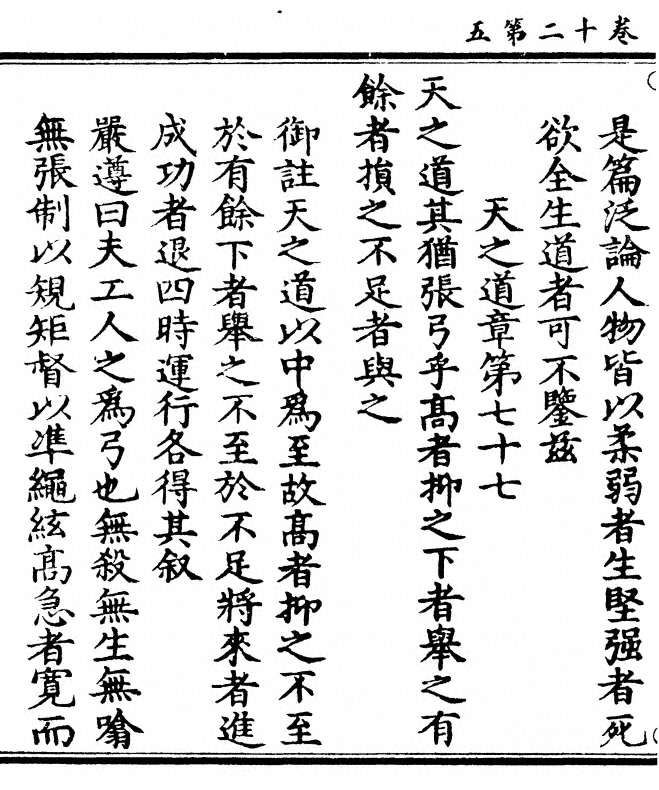 卷十二第五
是篇泛論人物皆以柔弱者生堅强者死
欲全生道者可不鑒兹
天之道章第七十七
天之道其猶張弓乎髙者抑之下者舉之有
餘者損之不足者與之
御註天之道以中爲至故髙者抑之不至
於有餘下者舉之不至於不足將來者進
成功者退四時運行各得其叙
嚴遵曰夫工人之爲弓也無殺無生無噏
無張制以規矩督以凖繩絃髙急者寛而